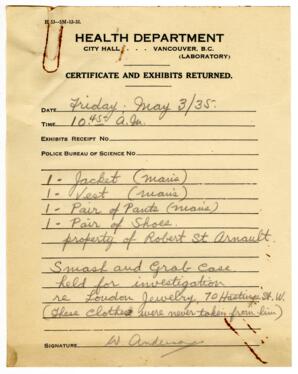 H 53—5M-12-31.
HEALTH DEPARTMENT
CITY HALL . . . VANCOUVER, B.C.
(LABORATORY)
CERTIFICATE AND EXHIBITS RETURNED.
DATE Friday. May 3/35.
TIME 10.45 A.M.
EXHIBITS RECEIPT NO.
POLICE BUREAU OF SCIENCE NO.
1 - Jacket (man's)
1 - Vest (man's)
1 - Pair of Pants (man's)
1 - Pair of Shoes.
property of Robert St Arnault.
Smash and Grab Case
held for investigation
re Loudon Jewelry, 70 Hastings St. W.
(These clothes were never taken from him)
SIGNATURE W Anderson